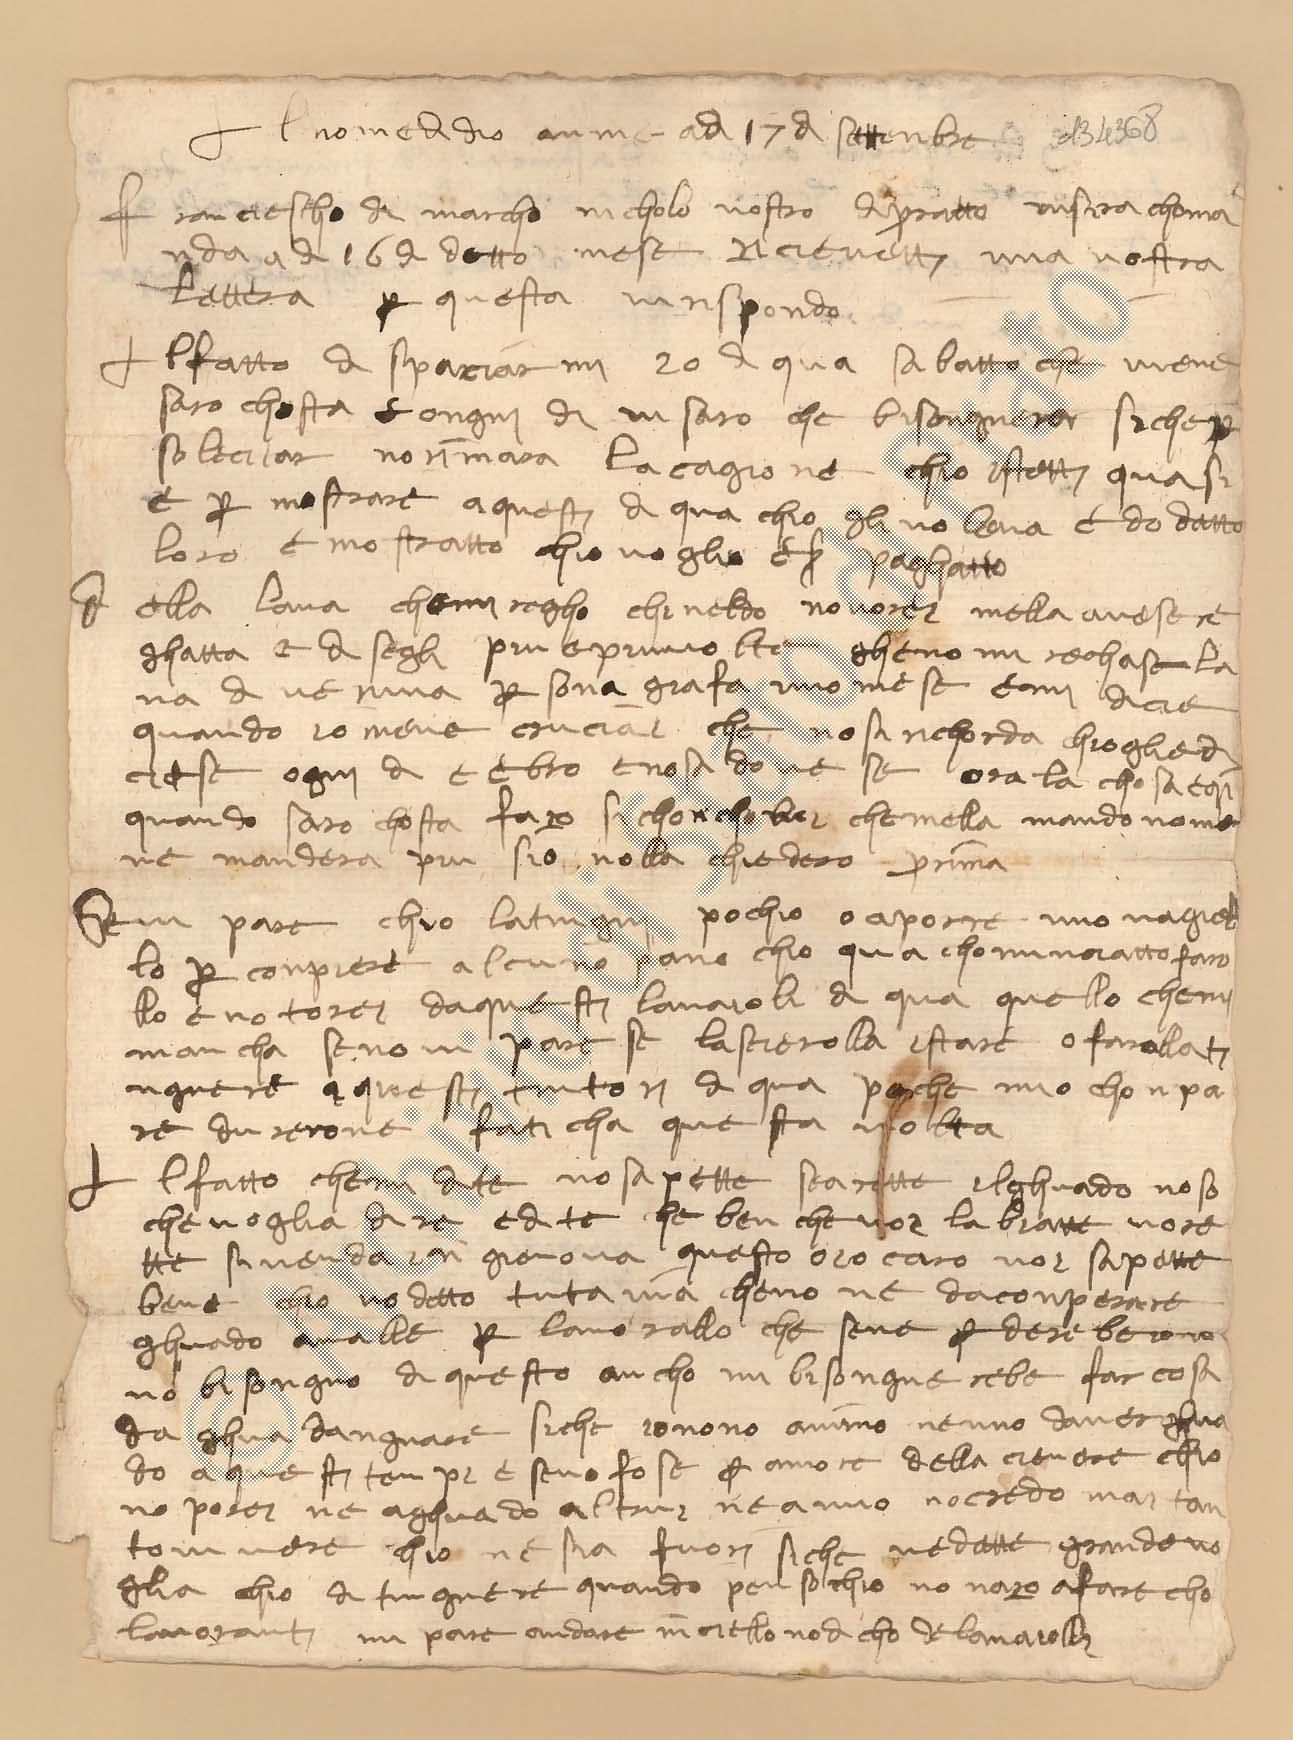 + l nome di dio ame adi 17 di settenbre
d34368
Franciescho di marcho nicholo vostro di pratto visirachoma
nda adi 16 di detto mese ricievetti una vostra
lettera per questa vi rispondo
+ l fatto di spaciarmi 20 di qua sabatto che viene
saro chosta e ongni di vi saro che bisongnera siche per
soleciar no rimara la cagione chio istetti quasi
e per mostrare a questi di qua chio gli voleva e do detto
loro e mostratto chio voglio eser paghatto
della lana chemi regho chineldo no vorei mella avese re
ghatta e disegli piu e piu volte gheno mi rechase la
na di veruna persona grafa uno mese emi dicie
quando io mene cruciai che nosi richorda chioglied
ciese ogni di e ebro e nosa dove se ora la chosa e qi
quando saro chosta faro si chon choloi chemella mando nome
ne mandera piu sio nolla chiedero prima
Se vi pare chio la tingni pochio o aporre uno vagiel
lo per conpiere alcuno pano chio qua chominciatto faro
llo e no torei da questi lanaioli di qua quello chemi
mancha se no vi pare se lascierolla istare o farolla ti
ngnere a questi tintori di qua perche mio chonpa
re durerone faticha questa volta
+ l fatto chemi dite no sapette se arette il ghuado noso
che voglia dire e dite he ben che voi labiatte vore
tte si venda in gienova questo oro caro voi sapette
bene chio vo detto tutavia cheno ne da conperare
ghuado avalle per lavorallo che sene perderebe io no
no bisongno di questo ancho mi bisongnierebe far cosa
da ghuadangnare siche io nono animo neuno daver ghua
do a questi tenpi e se no fose per amore della cienere chio
no porei ne a ghuado altrui ne a mio no credo mai tan
to vivere chio ne sia fuori siche vedette grande vo
glia chio di tingnere quando penso chio no naro a fare cho
lavoranti mi pare andare in cielo nodicho de lanaioli